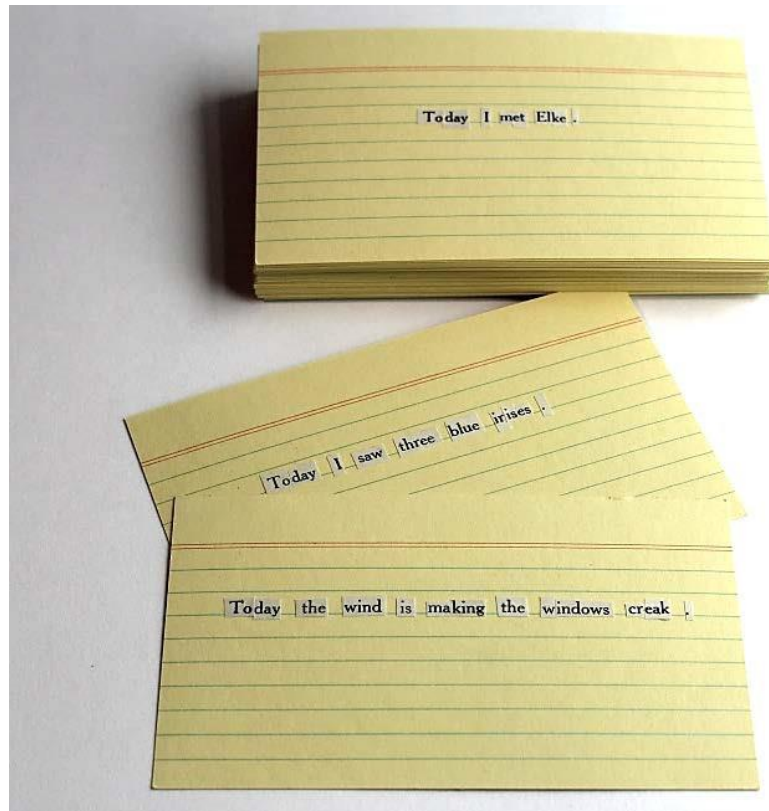 Today I met Elke.
Today I saw three blue irises.
Today the wind is making the windows creak.